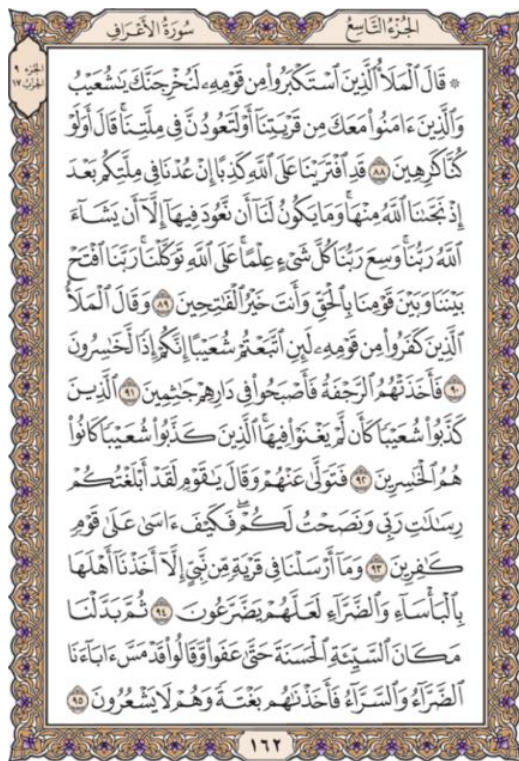 الجُزْءُ التَّاسِعُ
سُورَةُ الأَعْرَافِ
الجزء ٩
الحزب ١٧
۞ قَالَ ٱلْمَلَأُ ٱلَّذِينَ ٱسْتَكْبَرُوا۟ مِن قَوْمِهِۦ لَنُخْرِجَنَّكَ يَـٰشُعَيْبُ
وَٱلَّذِينَ ءَامَنُوا۟ مَعَكَ مِن قَرْيَتِنَآ أَوْ لَتَعُودُنَّ فِى مِلَّتِنَا ۚ قَالَ أَوَلَوْ
كُنَّا كَـٰرِهِينَ ٨٨ قَدِ ٱفْتَرَيْنَا عَلَى ٱللَّهِ كَذِبًا إِنْ عُدْنَا فِى مِلَّتِكُم بَعْدَ
إِذْ نَجَّىٰنَا ٱللَّهُ مِنْهَا ۚ وَمَا يَكُونُ لَنَآ أَن نَّعُودَ فِيهَآ إِلَّآ أَن يَشَآءَ
ٱللَّهُ رَبُّنَا ۚ وَسِعَ رَبُّنَا كُلَّ شَىْءٍ عِلْمًا ۚ عَلَى ٱللَّهِ تَوَكَّلْنَا ۚ رَبَّنَا ٱفْتَحْ
بَيْنَنَا وَبَيْنَ قَوْمِنَا بِٱلْحَقِّ وَأَنتَ خَيْرُ ٱلْفَـٰتِحِينَ ٨٩ وَقَالَ ٱلْمَلَأُ
ٱلَّذِينَ كَفَرُوا۟ مِن قَوْمِهِۦ لَئِنِ ٱتَّبَعْتُمْ شُعَيْبًا إِنَّكُمْ إِذًا لَّخَـٰسِرُونَ
٩٠ فَأَخَذَتْهُمُ ٱلرَّجْفَةُ فَأَصْبَحُوا۟ فِى دَارِهِمْ جَـٰثِمِينَ ٩١ ٱلَّذِينَ
كَذَّبُوا۟ شُعَيْبًا كَأَن لَّمْ يَغْنَوْا۟ فِيهَا ۚ ٱلَّذِينَ كَذَّبُوا۟ شُعَيْبًا كَانُوا۟
هُمُ ٱلْخَـٰسِرِينَ ٩٢ فَتَوَلَّىٰ عَنْهُمْ وَقَالَ يَـٰقَوْمِ لَقَدْ أَبْلَغْتُكُمْ
رِسَـٰلَـٰتِ رَبِّى وَنَصَحْتُ لَكُمْ ۖ فَكَيْفَ ءَاسَىٰ عَلَىٰ قَوْمٍ
كَـٰفِرِينَ ٩٣ وَمَآ أَرْسَلْنَا فِى قَرْيَةٍ مِّن نَّبِىٍّ إِلَّآ أَخَذْنَآ أَهْلَهَا
بِٱلْبَأْسَآءِ وَٱلضَّرَّآءِ لَعَلَّهُمْ يَضَّرَّعُونَ ٩٤ ثُمَّ بَدَّلْنَا
مَكَانَ ٱلسَّيِّئَةِ ٱلْحَسَنَةَ حَتَّىٰ عَفَوا۟ وَّقَالُوا۟ قَدْ مَسَّ ءَابَآءَنَا
ٱلضَّرَّآءُ وَٱلسَّرَّآءُ فَأَخَذْنَـٰهُم بَغْتَةً وَهُمْ لَا يَشْعُرُونَ ٩٥
١٦٢